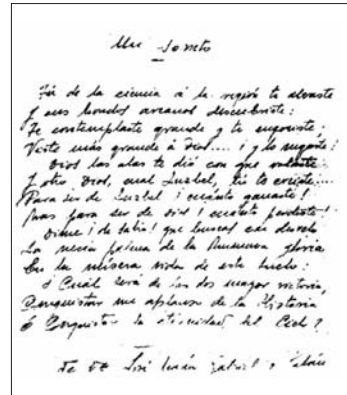 Un Soneto
Tú de la ciencia á la región te alzaste
Y sus hondos arcanos descubriste:
Te contemplaste grande y te engreiste;
Viste más grande á Dios.... ¡y lo negaste!
Dios las alas te dió con que volaste
Y otro Dios, cual Luzbel, tú te creiste....
Para ser de Luzbel ¡cuánto ganaste!
Mas para ser de Dios ¡cuánto perdiste!
Dime ¡oh sabio! que buscas
La necia palma de la humana gloria
En la mísera vida de este suelo:
¿Cuál será de las dos mayor victoria,
Conquistar un aplauso de la Historia
ó Conquistar la eternidad del Cielo?
José María Gabriel y Galán